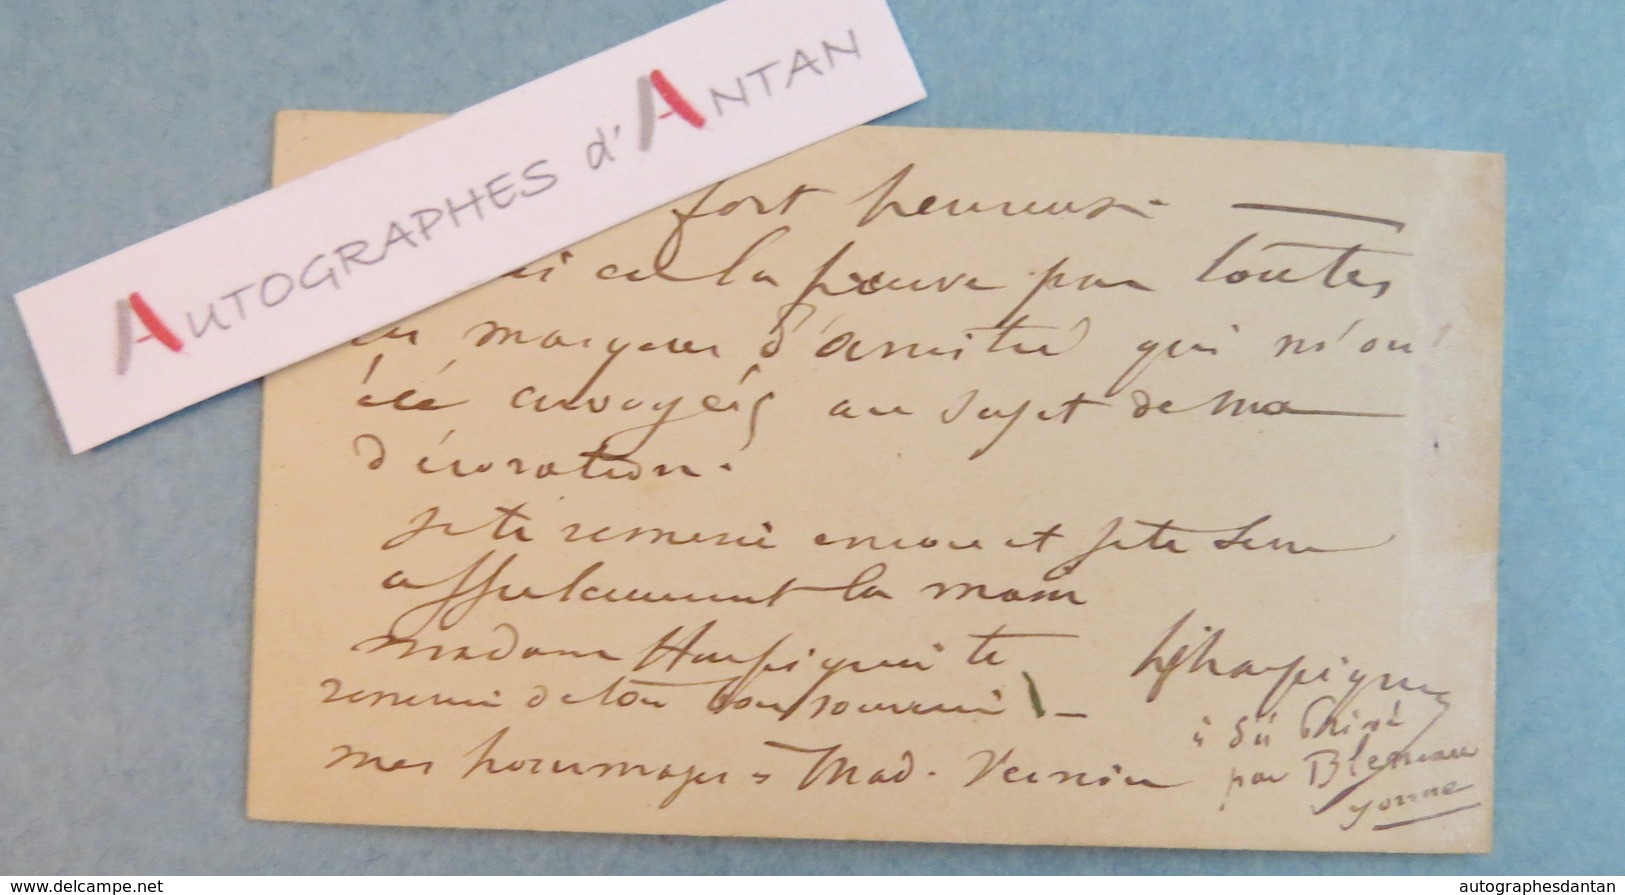 AUTOGRAPHES d'ANTAN
fort heureuse
ai eu la preuve par toutes
les marques d'amitié qui m'ont
été envoyés au sujet de ma
décoration.
je te remercie encore et je te serre
affectueusement la main
madame Harpignies te
remercie de ton bon souvenir —
mes hommages à Mad. Vernier
hjharpignies
à St Privé
par Bleneau
yonne
www.delcampe.net
autographesdantan